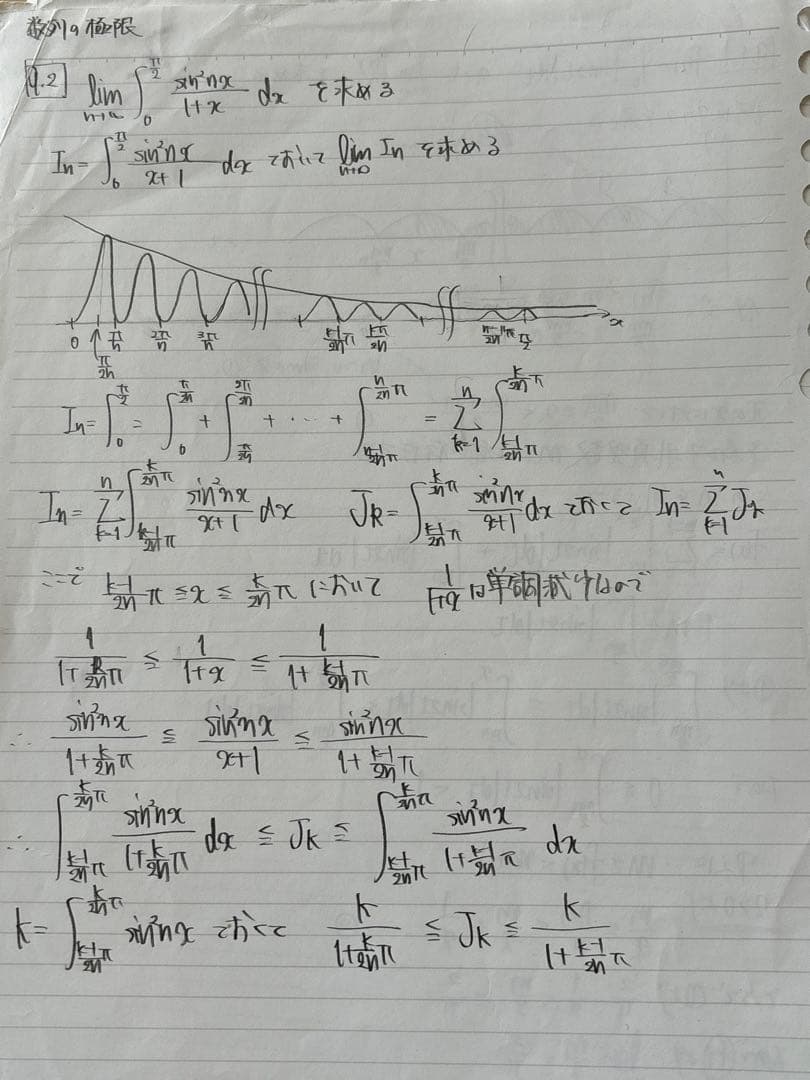 数列の極限
4.2 lim_{n→∞} ∫_0^{π/2} sin²nx/(1+x) dx を求める
I_n = ∫_0^{π/2} sin²nx/(x+1) dx とおいて lim_{n→∞} I_n を求める
0 π/2n π/n 2π/n 3π/n (k-1)/2n π kπ/2n (n-1)/2n π π/2 x
I_n = ∫_0^{π/2} = ∫_0^{π/2n} + ∫_{π/2n}^{2π/2n} + ⋯ + ∫_{(n-1)/2n π}^{n/2n π} = Σ_{k=1}^{n} ∫_{(k-1)/2n π}^{k/2n π}
I_n = Σ_{k=1}^{n} ∫_{(k-1)/2n π}^{k/2n π} sin²nx/(x+1) dx J_k = ∫_{(k-1)/2n π}^{k/2n π} sin²nx/(x+1) dx とおくと I_n = Σ_{k=1}^{n} J_k
ここで (k-1)/2n π ≦ x ≦ k/2n π において 1/(1+x) は単調減少なので
1/(1+k/2n π) ≦ 1/(1+x) ≦ 1/(1+(k-1)/2n π)
∴ sin²nx/(1+k/2n π) ≦ sin²nx/(x+1) ≦ sin²nx/(1+(k-1)/2n π)
∴ ∫_{(k-1)/2n π}^{k/2n π} sin²nx/(1+k/2n π) dx ≦ J_k ≦ ∫_{(k-1)/2n π}^{k/2n π} sin²nx/(1+(k-1)/2n π) dx
k = ∫_{(k-1)/2n π}^{k/2n π} sin²nx とおくと k/(1+k/2n π) ≦ J_k ≦ k/(1+(k-1)/2n π)